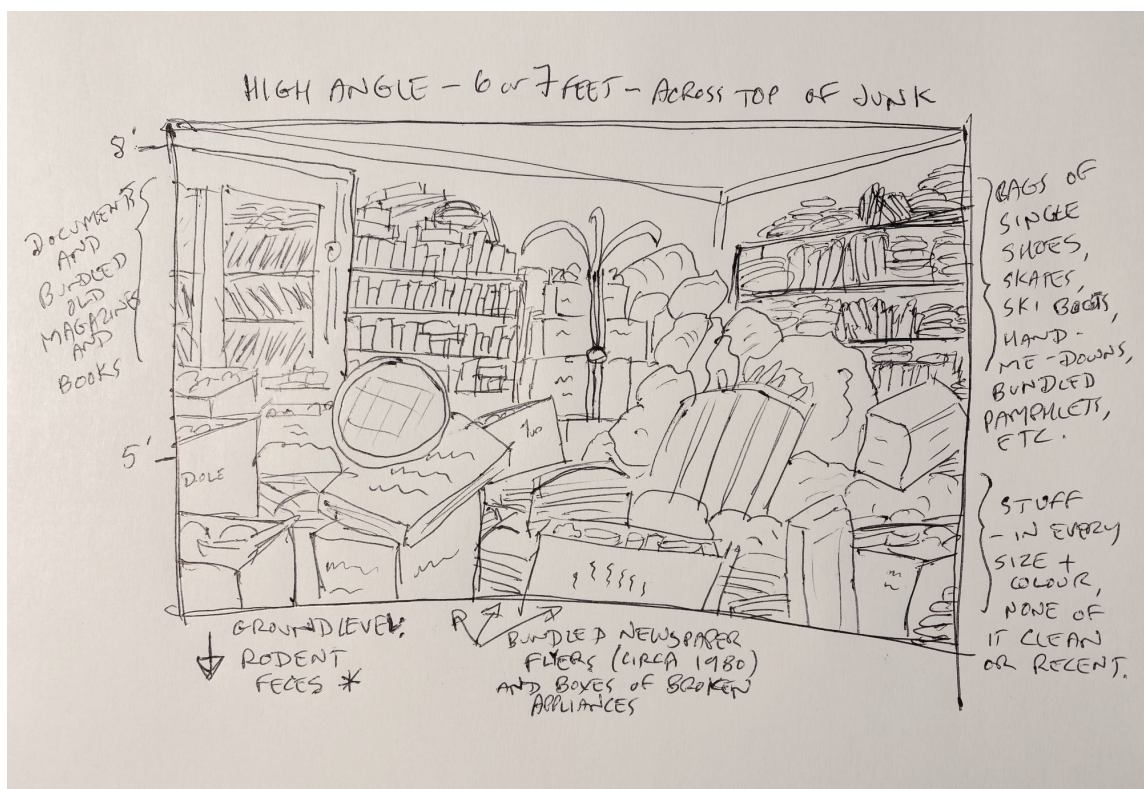 HIGH ANGLE - 6 or 7 FEET - ACROSS TOP OF JUNK
8'
DOCUMENTS
AND
BUNDLED
OLD
MAGAZINES
AND
BOOKS
5'
DOLE
BAGS OF
SINGLE
SHOES,
SKATES,
SKI BOOTS,
HAND-
ME-DOWNS,
BUNDLED
PAMPHLETS,
ETC.
STUFF
- IN EVERY
SIZE +
COLOUR,
NONE OF
IT CLEAN
OR RECENT.
GROUND LEVEL:
RODENT
FECES *
BUNDLED NEWSPAPER
FLYERS (CIRCA 1980)
AND BOXES OF BROKEN
APPLIANCES